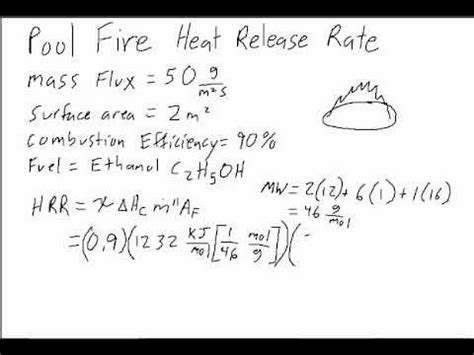 Pool Fire Heat Release Rate
mass Flux = 50 g/m²s
Surface area = 2m²
Combustion Efficiency = 90%
Fuel = Ethanol C₂H₅OH
MW = 2(12) + 6(1) + 1(16)
= 46 g/mol
HRR = χ ΔHc ṁ'' A_F
= (0.9)(1232 KJ/mol [1/46 mol/g])(